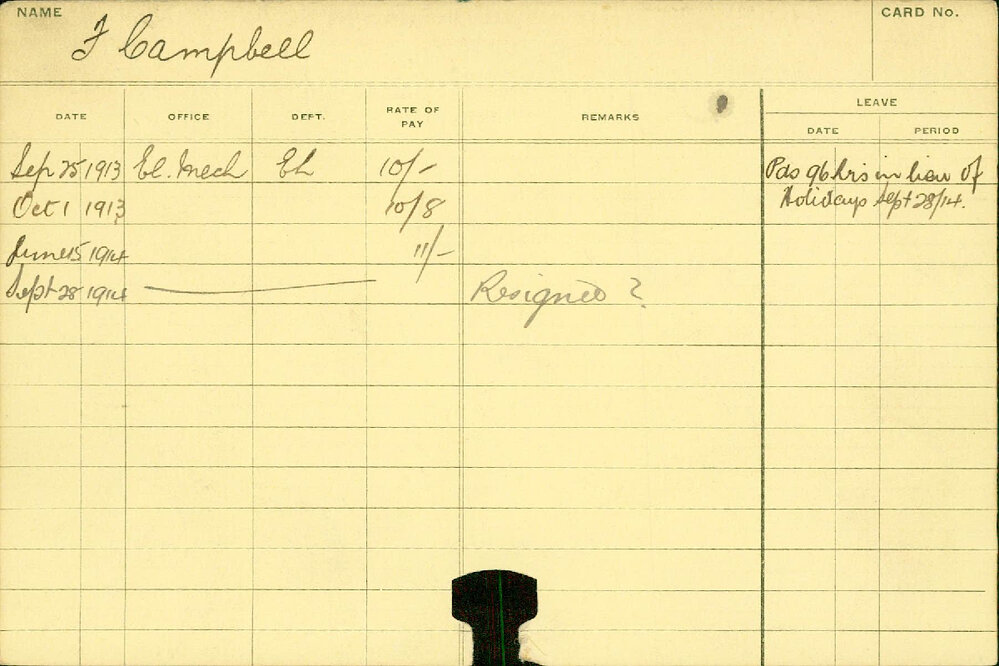 NAME
CARD No.
F Campbell
DATE OFFICE DEPT. RATE OF PAY REMARKS LEAVE
DATE PERIOD
Sep 25 1913 El. Mech EL 10/-
Oct 1 1913 10/8
June 15 1914 11/-
Sept 28 1914 Resigned ?
96 hrs in lieu of
Holidays Sept 28/14.